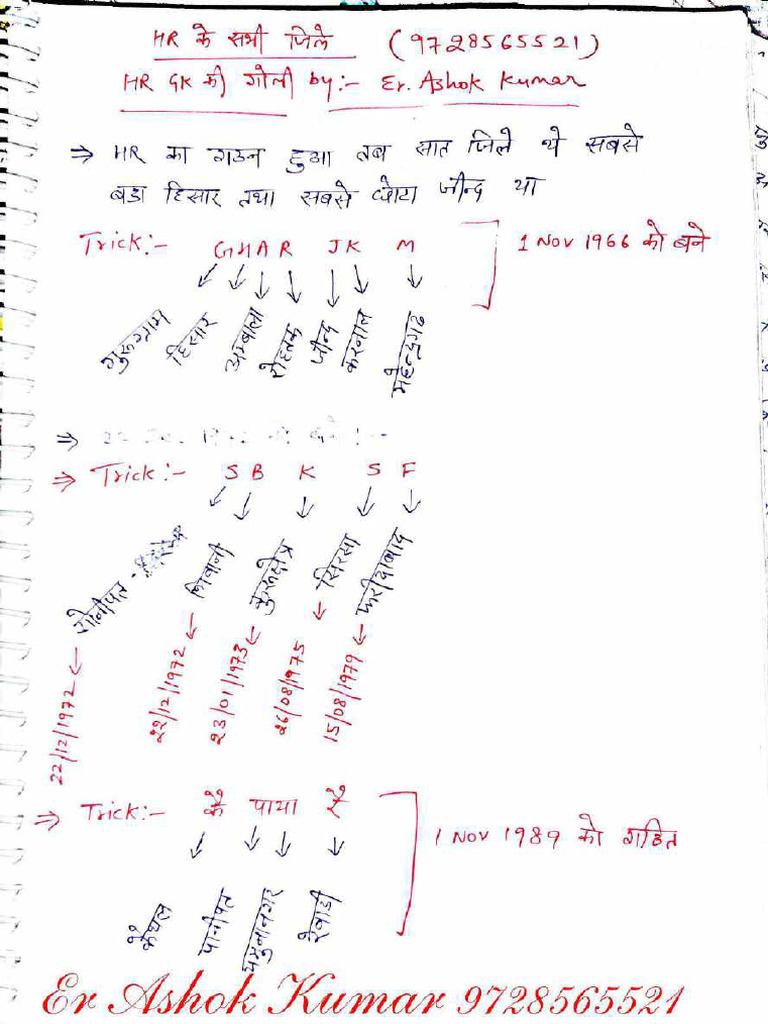 HR के सभी जिले (9728565521)
HR GK की गोली by:- Er. Ashok Kumar
⇒ HR का गठन हुआ तब सात जिले थे सबसे
बडा हिसार तथा सबसे छोटा जीन्द था
Trick:- GHAR JK M ] 1 Nov 1966 को बने
गुरूग्राम हिसार अम्बाला रोहतक जीन्द करनाल महेन्द्रगढ
⇒
⇒ Trick:- S B K S F
सोनीपत - भिवानी कुरूक्षेत्र सिरसा फरीदाबाद
22/12/1972 22/12/1972 23/01/1973 26/08/1975 15/08/1979
⇒ Trick:- कै पाया रे ] 1 Nov 1989 को गठित
कैथल पानीपत यमुनानगर रेवाडी
Er Ashok Kumar 9728565521